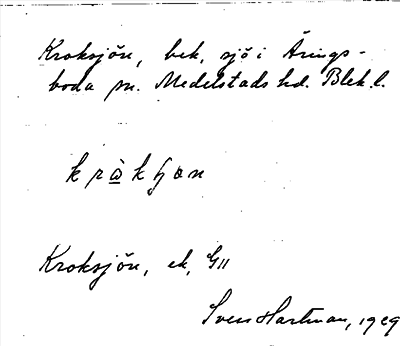 Kroksjön, bek. sjö i Årings-
boda sn. Medelstads hd. Blek. l.
kràkɧøn
Kroksjön, ek, G11
Sven Hartman, 1929